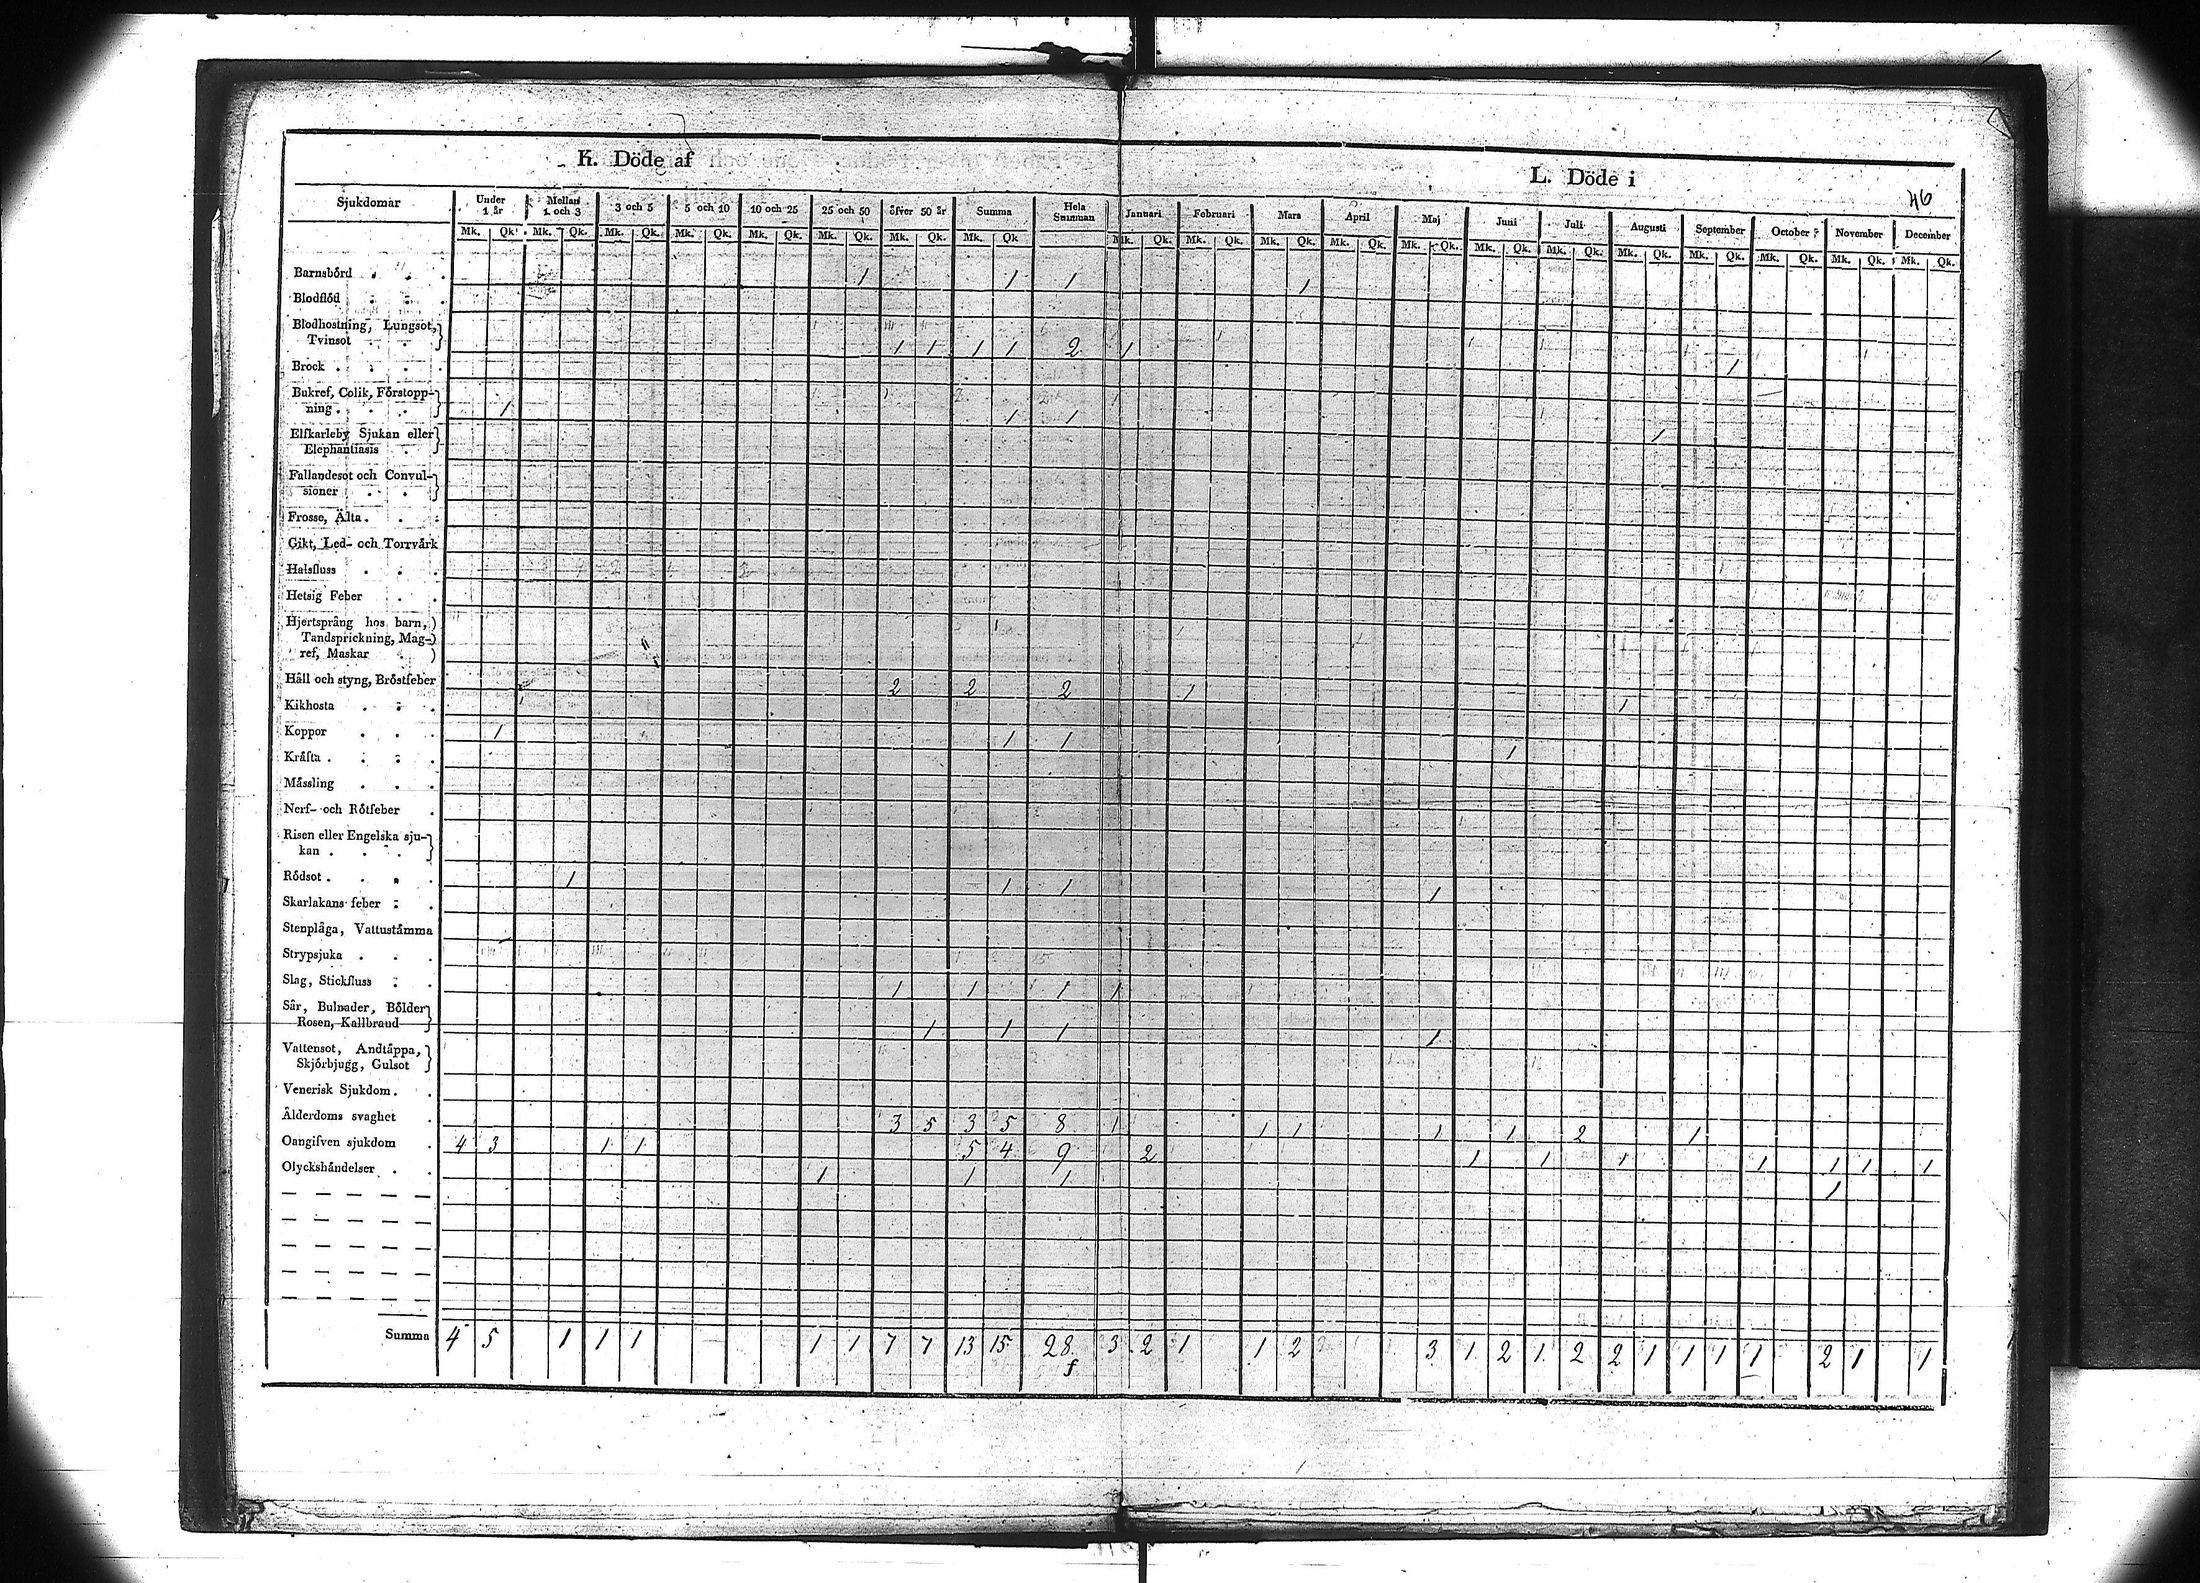 K. Döde af
L. Döde i
46
Sjukdomar Under 1 år Mellan 1 och 3 3 och 5 5 och 10 10 och 25 25 och 50 öfver 50 år Summa Hela Summan Januari Februari Mars April Maj Juni Juli Augusti September October November December
Mk. Qk. Mk. Qk. Mk. Qk. Mk. Qk. Mk. Qk. Mk. Qk. Mk. Qk. Mk. Qk Mk. Qk. Mk. Qk. Mk. Qk. Mk. Qk. Mk. Qk. Mk. Qk. Mk. Qk. Mk. Qk. Mk. Qk. Mk. Qk. Mk. Qk. Mk. Qk.
Barnsbörd 1 1 1 1
Blodflöd
Blodhostning, Lungsot,
Tvinsot 1 1 1 1 2 1 1
Brock
Bukref, Colik, Förstopp-
ning 1 1 1 1
Elfkarleby Sjukan eller
Elephantiasis
Fallandesot och Convul-
sioner
Frosse, Älta
Gikt, Led- och Torrvärk
Halsfluss
Hetsig Feber
Hjertsprång hos barn,
Tandsprickning, Mag-
ref, Maskar
Håll och styng, Bröstfeber 2 2 2 1 1
Kikhosta
Koppor 1 1 1 1
Kräfta
Mässling
Nerf- och Rötfeber
Risen eller Engelska sju-
kan
Rödsot 1 1 1 1
Skarlakans feber
Stenplåga, Vattustämma
Strypsjuka
Slag, Stickfluss 1 1 1 1
Sår, Bulnader, Bölder
Rosen, Kallbrand 1 1 1 1
Vattensot, Andtäppa,
Skjörbjugg, Gulsot
Venerisk Sjukdom
Ålderdoms svaghet 3 5 3 5 8 1 1 1 1 1 2 1
Oangifven sjukdom 4 3 1 1 5 4 9 2 1 1 1 1 1 1 1
Olyckshändelser 1 1 1 1
Summa 4 5 1 1 1 1 1 7 7 13 15 28 3 2 1 1 2 3 1 2 1 2 2 1 1 1 1 2 1 1